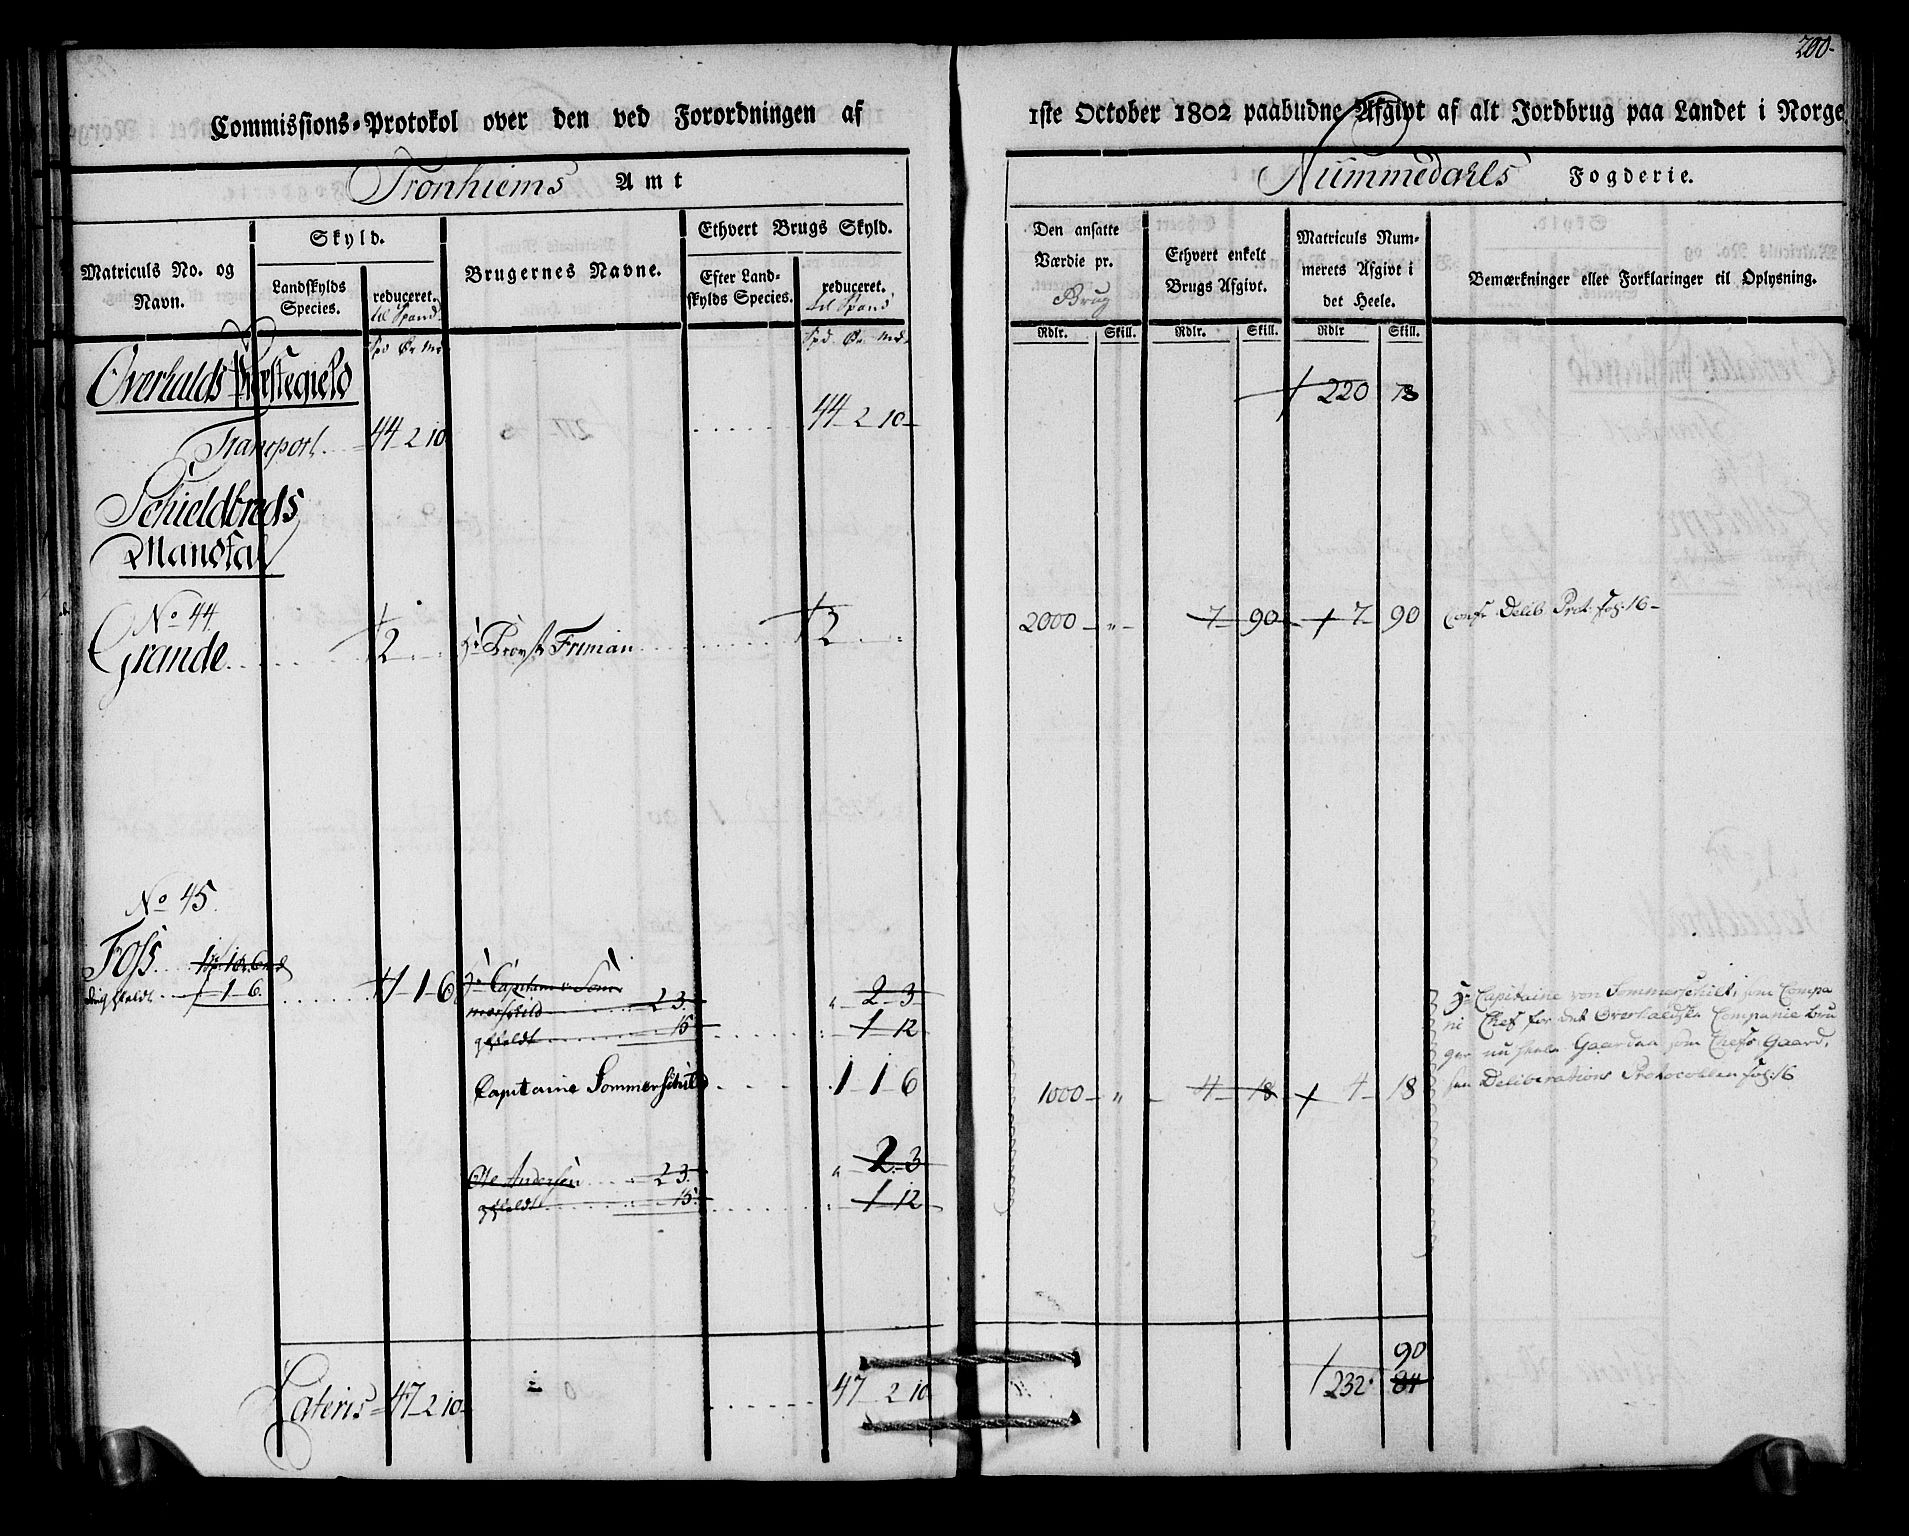 200.
Commissions-Protokol over den ved Forordningen af
1ste October 1802 paabudne Afgivt af alt Jordbrug paa Landet i Norge
Tronhiems Amt
Nummedahls Fogderie.
Matriculs No. og Navn.
Skyld.
Landskylds Species.
reduceret.
til Spand
Brugernes Navne.
Ethvert Brugs Skyld.
Efter Landskylds Species.
reduceret.
til Spand
Den ansatte Værdie pr.
Brug
Ethvert enkelt Brugs Afgivt.
Matriculs Nummerets Afgivt i det Heele.
Bemærkninger eller Forklaringer til Oplysning.
Rdlr. Skill. Rdlr. Skill. Rdlr Skill.
Spd Ør Mk
Spd Ør Mk
Overhalds Præstegield
220 73
Transport 44 2 10
44 2 10
Schieldbreds
Mandtal
No 44.
Grande 2
Hr Provst Friman 2
2000 „ 7 90 7 90
Conf. Delib. Prot. fol: 16
No 45.
Foss. 1 sp. 1 ør. 6 mk
1 1 6.
1 1 6
Hr Capitain v. Som
merschild 2 3.
2 3
15
1 12
Capitaine Sommerschild
1 1 6
1000 „ 4 18 4 18
Hr Capitaine von Sommerschilt, som Compa
ni Chef for det Overhaldske Companie bru
ger nu heele Gaarden som Chefs Gaard,
Deliberations Protocollen fol: 16
Ole Andersen 2 3.
2 3
15
1 12
Lateris 47 2 10
47 2 10
90
232 84